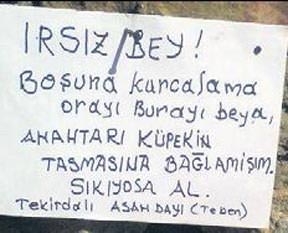 IRSIZ BEY!
BOŞUNA kurcalama
orayı Burayı beya,
ANAHTARI KÜPEKİN
TASMASINA BAĞLAMIŞIM.
SIKIYOSA AL.
Tekirdalı ASAN DAYI (Teben)